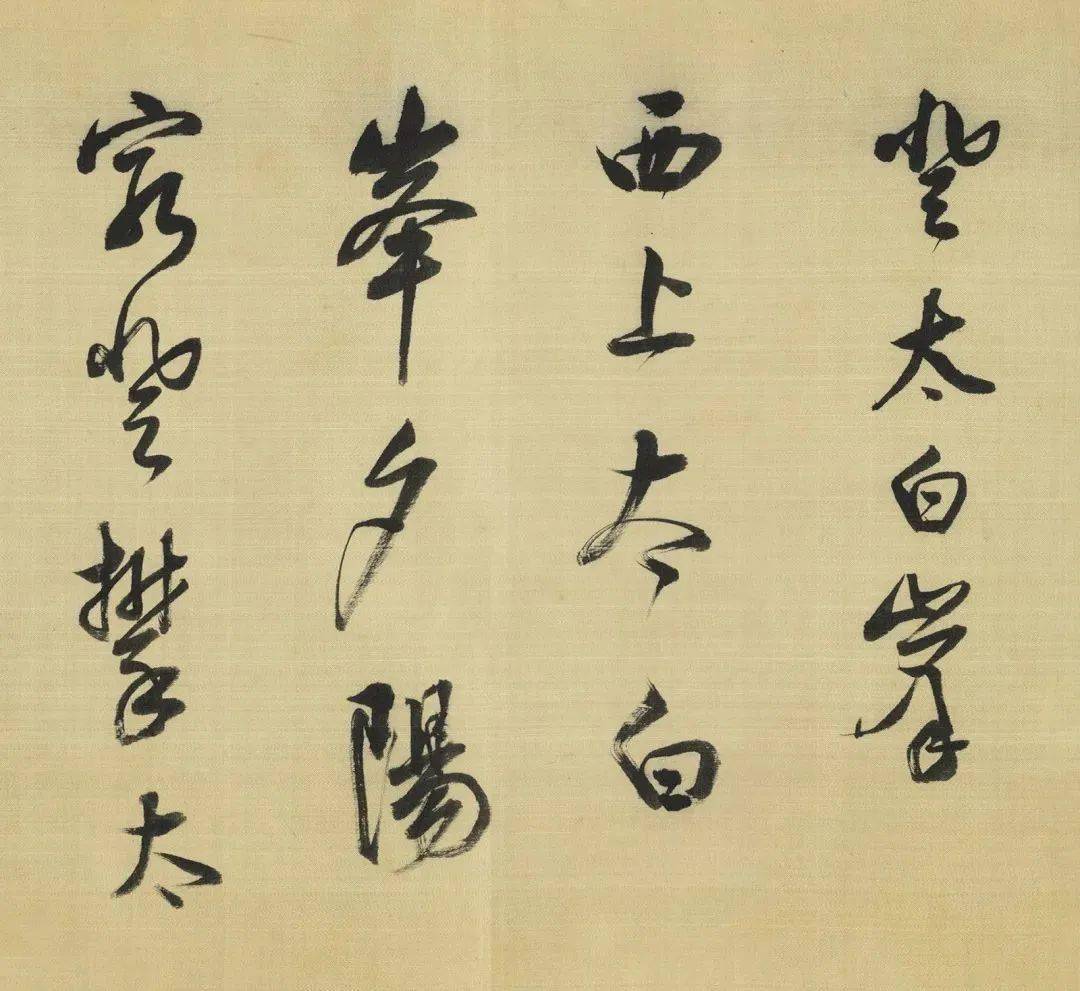 登太白峯
西上太白
峯夕陽
窮登攀太